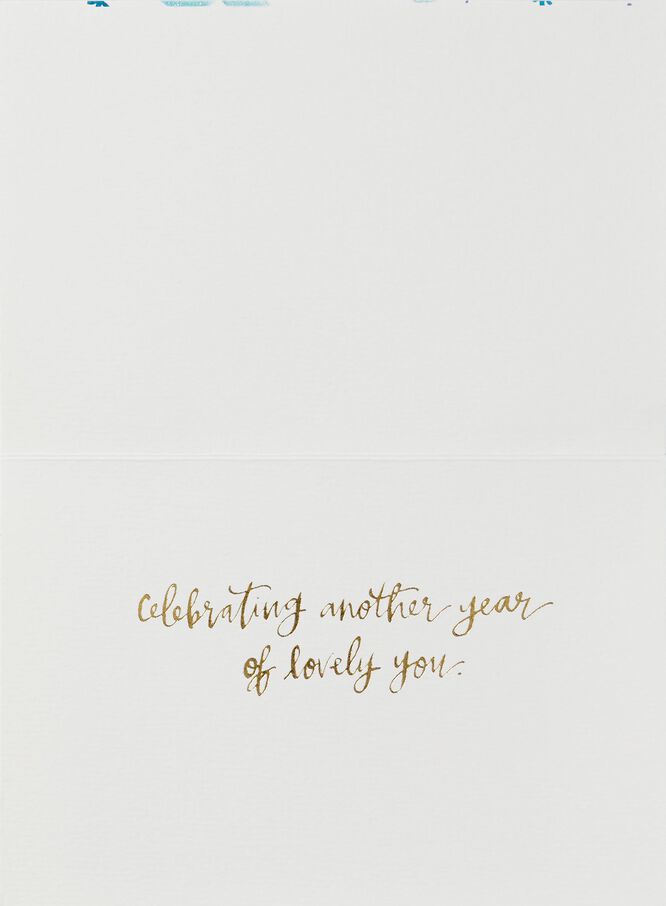 Celebrating another year
of lovely you.